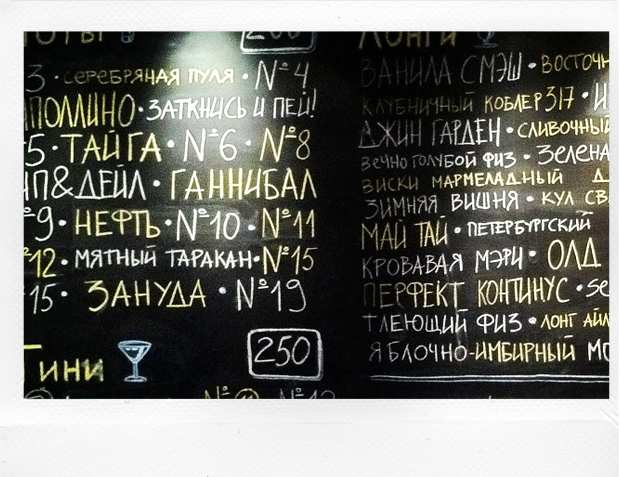 3 · СЕРЕБРЯНАЯ ПУЛЯ · №4
ПОЛЛИНО · ЗАТКНИСЬ И ПЕЙ!
5 · ТАЙГА · №6 · №8
П&ДЕЙЛ · ГАННИБАЛ
9 · НЕФТЬ · №10 · №11
12 · МЯТНЫЙ ТАРАКАН · №15
15 · ЗАНУДА · №19
ТИНИ 250
ЛОНГИ
ВАНИЛА СМЭШ · ВОСТОЧН
КЛУБНИЧНЫЙ КОБЛЕР 317 · И
ДЖИН ГАРДЕН · СЛИВОЧНЫЙ
ВЕЧНО ГОЛУБОЙ ФИЗ · ЗЕЛЕНА
ВИСКИ МАРМЕЛАДНЫЙ Д
ЗИМНЯЯ ВИШНЯ · КУЛ СВ
МАЙ ТАЙ · ПЕТЕРБУРГСКИЙ
КРОВАВАЯ МЭРИ · ОЛД
ПЕРФЕКТ КОНТИНУС · SE
ТЛЕЮЩИЙ ФИЗ · ЛОНГ АЙЛ
ЯБЛОЧНО-ИМБИРНЫЙ МО